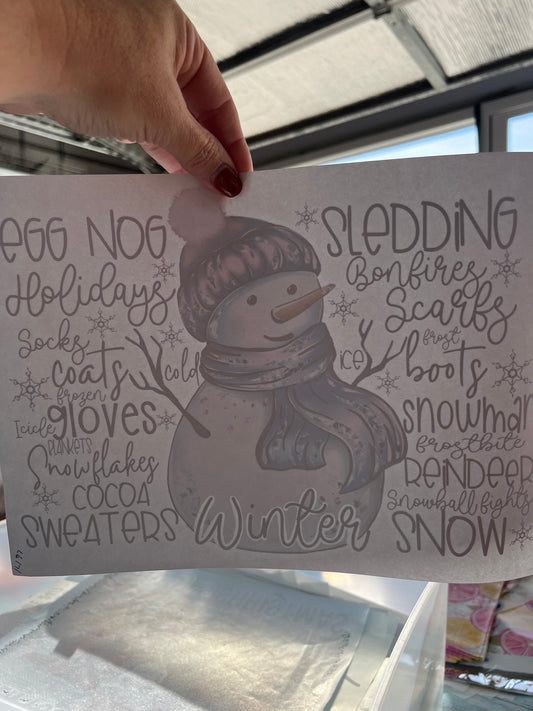 EGG NOG
Holidays
Socks
coats
frozen
gloves
Icicle
BLANKETS
Snowflakes
COCOA
SWEATERS
cold
Winter
ice
SLEDDING
Bonfires
Scarfs
frost
boots
snowman
frostbite
REINDEER
Snowball fights
SNOW